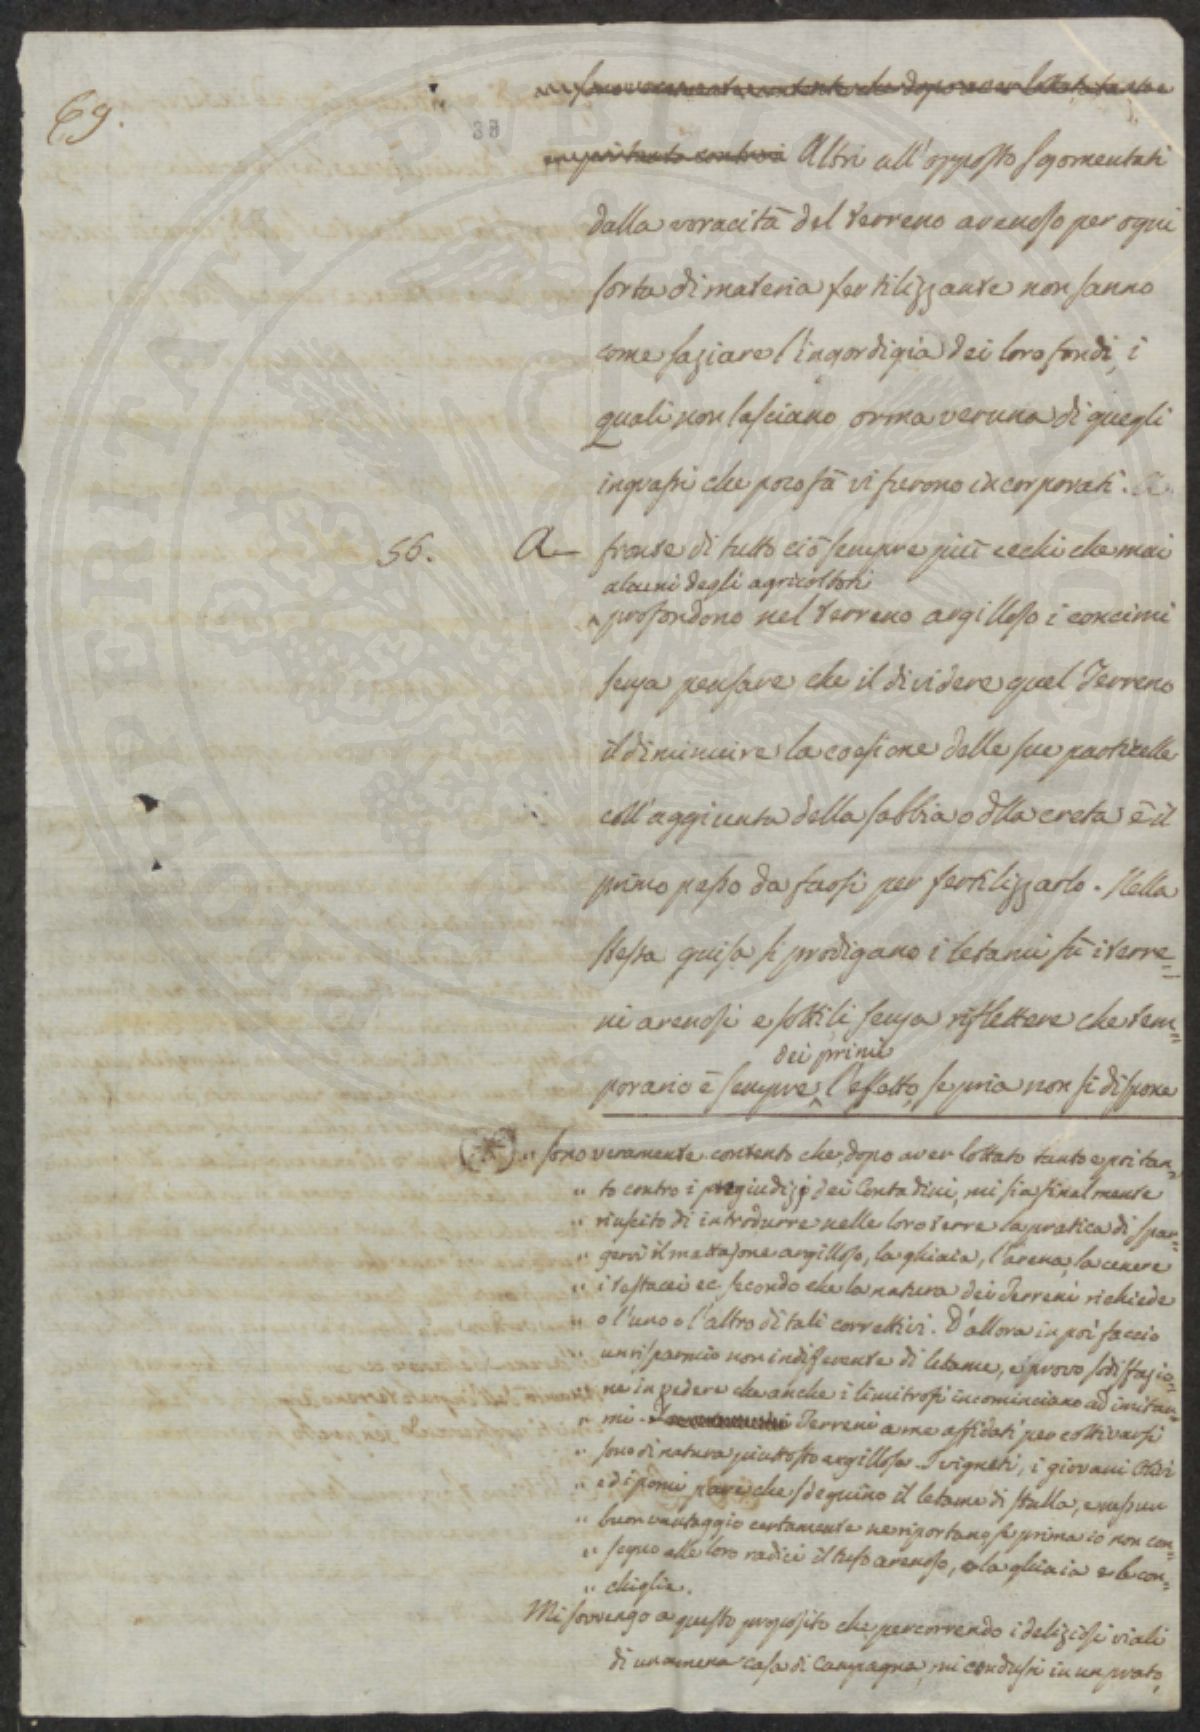 69.
38
sono veramente contento che dopo aver lottato tanto e
e pertanto contro i Altri all'opposto sgomentati
dalla voracità del terreno arenoso per ogni
sorta di materia fertilizzante non sanno
come saziare l'ingordigia dei loro fondi, i
quali non lasciano orma veruna di quegli
ingrassi che poco fà vi furono incorporati. A
56. A fronte di tutto ciò sempre più ciechi che mai
alcuni degli agricoltori
^ profondono nel terreno argilloso i concimi
senza pensare che il dividere quel Terreno
il diminuire la coesione delle sue particelle
coll'aggiunta della sabbia o dlla creta è il
primo passo da farsi per fertilizzarlo. Nella
stessa guisa si prodigano i letami sù i terre=
ni arenosi e sottili senza riflettere che tem=
dei primi
porario è sempre ^ l'effetto, se pria non si dispone
(*) " sono veramente contento che, dopo aver lottato tanto e poi tan=
" to contro i pregiudizj dei Contadini, mi sia finalmente
" riuscito di introdurre nelle loro terre la pratica di spar=
" gervi il mattajone argilloso, la ghiaia, l'arena, la cenere
" i testacei ec. secondo che la natura dei Terreni richiede
" o l'uno o l'altro di tali correttivi. D'allora in poi faccio
" un risparmio non indifferente di letame, e provo sodisfazio=
" ne in vedere che anche i limitrofi incominciano ad imitar=
" mi. I Terreni a me affidati per coltivarsi
" sono di natura piuttosto argillosa. I vigneti, i giovani Olivi
" ed i pomi pare che sdegnino il letame di stalla, e nessun
" buon vantaggio certamente ne riportano se prima io non con=
" segno alle loro radici il tufo arenoso, o la ghiaia e le con=
" chiglie.
Mi sovvengo a questo proposito che percorrendo i deliziosi viali
di un amena casa di Campagna, mi condussi in un prato,